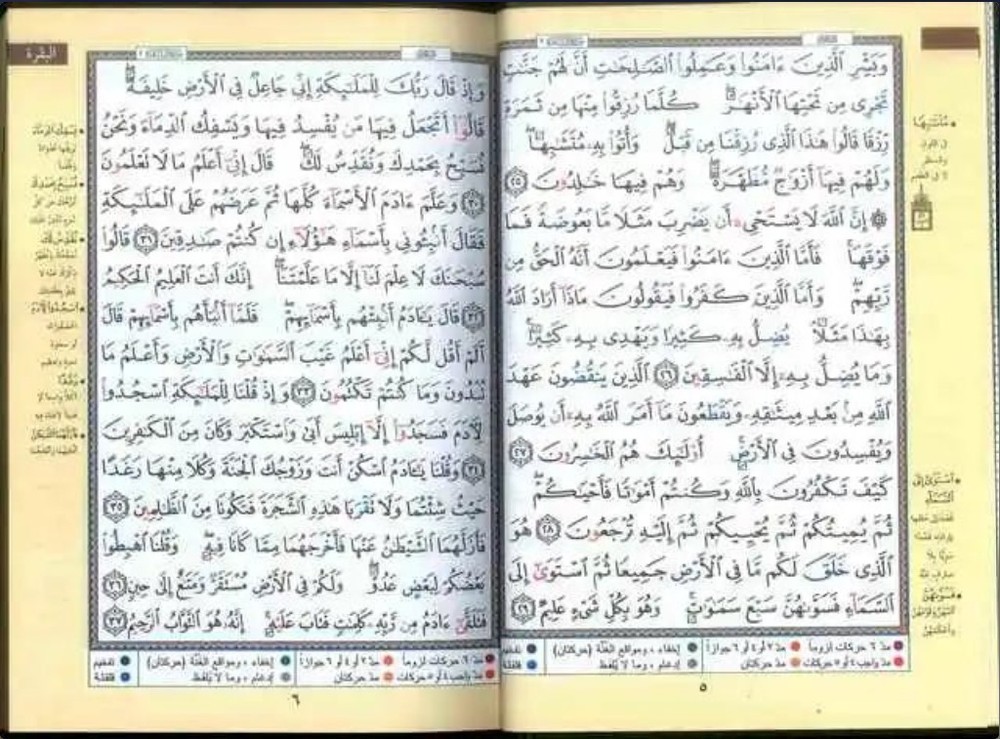 وَبَشِّرِ ٱلَّذِينَ ءَامَنُوا۟ وَعَمِلُوا۟ ٱلصَّـٰلِحَـٰتِ أَنَّ لَهُمْ جَنَّـٰتٍ
تَجْرِى مِن تَحْتِهَا ٱلْأَنْهَـٰرُ ۖ كُلَّمَا رُزِقُوا۟ مِنْهَا مِن ثَمَرَةٍ
رِّزْقًا قَالُوا۟ هَـٰذَا ٱلَّذِى رُزِقْنَا مِن قَبْلُ ۖ وَأُتُوا۟ بِهِۦ مُتَشَـٰبِهًا ۖ
وَلَهُمْ فِيهَآ أَزْوَٰجٌ مُّطَهَّرَةٌ ۖ وَهُمْ فِيهَا خَـٰلِدُونَ ٢٥
۞ إِنَّ ٱللَّهَ لَا يَسْتَحْىِۦٓ أَن يَضْرِبَ مَثَلًا مَّا بَعُوضَةً فَمَا
فَوْقَهَا ۚ فَأَمَّا ٱلَّذِينَ ءَامَنُوا۟ فَيَعْلَمُونَ أَنَّهُ ٱلْحَقُّ مِن
رَّبِّهِمْ ۖ وَأَمَّا ٱلَّذِينَ كَفَرُوا۟ فَيَقُولُونَ مَاذَآ أَرَادَ ٱللَّهُ
بِهَـٰذَا مَثَلًا ۘ يُضِلُّ بِهِۦ كَثِيرًا وَيَهْدِى بِهِۦ كَثِيرًا ۚ
وَمَا يُضِلُّ بِهِۦٓ إِلَّا ٱلْفَـٰسِقِينَ ٢٦ ٱلَّذِينَ يَنقُضُونَ عَهْدَ
ٱللَّهِ مِنۢ بَعْدِ مِيثَـٰقِهِۦ وَيَقْطَعُونَ مَآ أَمَرَ ٱللَّهُ بِهِۦٓ أَن يُوصَلَ
وَيُفْسِدُونَ فِى ٱلْأَرْضِ ۚ أُو۟لَـٰٓئِكَ هُمُ ٱلْخَـٰسِرُونَ ٢٧
كَيْفَ تَكْفُرُونَ بِٱللَّهِ وَكُنتُمْ أَمْوَٰتًا فَأَحْيَـٰكُمْ ۖ
ثُمَّ يُمِيتُكُمْ ثُمَّ يُحْيِيكُمْ ثُمَّ إِلَيْهِ تُرْجَعُونَ ٢٨ هُوَ
ٱلَّذِى خَلَقَ لَكُم مَّا فِى ٱلْأَرْضِ جَمِيعًا ثُمَّ ٱسْتَوَىٰٓ إِلَى
ٱلسَّمَآءِ فَسَوَّىٰهُنَّ سَبْعَ سَمَـٰوَٰتٍ ۚ وَهُوَ بِكُلِّ شَىْءٍ عَلِيمٌ ٢٩
مدّ ٦ حركات لزوماً مدّ ٢ أو ٤ أو ٦ جوازاً إخفاء، ومواقع الغُنَّة (حركتان) تفخيم
مدّ واجب ٤ أو ٥ حركات مدّ حركتان إدغام، وما لا يُلفظ قلقلة
٥
البقرة
وَإِذْ قَالَ رَبُّكَ لِلْمَلَـٰٓئِكَةِ إِنِّى جَاعِلٌ فِى ٱلْأَرْضِ خَلِيفَةً ۖ
قَالُوٓا۟ أَتَجْعَلُ فِيهَا مَن يُفْسِدُ فِيهَا وَيَسْفِكُ ٱلدِّمَآءَ وَنَحْنُ
نُسَبِّحُ بِحَمْدِكَ وَنُقَدِّسُ لَكَ ۖ قَالَ إِنِّىٓ أَعْلَمُ مَا لَا تَعْلَمُونَ
٣٠ وَعَلَّمَ ءَادَمَ ٱلْأَسْمَآءَ كُلَّهَا ثُمَّ عَرَضَهُمْ عَلَى ٱلْمَلَـٰٓئِكَةِ
فَقَالَ أَنۢبِـُٔونِى بِأَسْمَآءِ هَـٰٓؤُلَآءِ إِن كُنتُمْ صَـٰدِقِينَ ٣١ قَالُوا۟
سُبْحَـٰنَكَ لَا عِلْمَ لَنَآ إِلَّا مَا عَلَّمْتَنَآ ۖ إِنَّكَ أَنتَ ٱلْعَلِيمُ ٱلْحَكِيمُ
٣٢ قَالَ يَـٰٓـَٔادَمُ أَنۢبِئْهُم بِأَسْمَآئِهِمْ ۖ فَلَمَّآ أَنۢبَأَهُم بِأَسْمَآئِهِمْ قَالَ
أَلَمْ أَقُل لَّكُمْ إِنِّىٓ أَعْلَمُ غَيْبَ ٱلسَّمَـٰوَٰتِ وَٱلْأَرْضِ وَأَعْلَمُ مَا
تُبْدُونَ وَمَا كُنتُمْ تَكْتُمُونَ ٣٣ وَإِذْ قُلْنَا لِلْمَلَـٰٓئِكَةِ ٱسْجُدُوا۟
لِـَٔادَمَ فَسَجَدُوٓا۟ إِلَّآ إِبْلِيسَ أَبَىٰ وَٱسْتَكْبَرَ وَكَانَ مِنَ ٱلْكَـٰفِرِينَ
٣٤ وَقُلْنَا يَـٰٓـَٔادَمُ ٱسْكُنْ أَنتَ وَزَوْجُكَ ٱلْجَنَّةَ وَكُلَا مِنْهَا رَغَدًا
حَيْثُ شِئْتُمَا وَلَا تَقْرَبَا هَـٰذِهِ ٱلشَّجَرَةَ فَتَكُونَا مِنَ ٱلظَّـٰلِمِينَ ٣٥
فَأَزَلَّهُمَا ٱلشَّيْطَـٰنُ عَنْهَا فَأَخْرَجَهُمَا مِمَّا كَانَا فِيهِ ۖ وَقُلْنَا ٱهْبِطُوا۟
بَعْضُكُمْ لِبَعْضٍ عَدُوٌّ ۖ وَلَكُمْ فِى ٱلْأَرْضِ مُسْتَقَرٌّ وَمَتَـٰعٌ إِلَىٰ حِينٍ ٣٦
فَتَلَقَّىٰٓ ءَادَمُ مِن رَّبِّهِۦ كَلِمَـٰتٍ فَتَابَ عَلَيْهِ ۚ إِنَّهُۥ هُوَ ٱلتَّوَّابُ ٱلرَّحِيمُ ٣٧
مدّ ٦ حركات لزوماً مدّ ٢ أو ٤ أو ٦ جوازاً إخفاء، ومواقع الغُنَّة (حركتان) تفخيم
مدّ واجب ٤ أو ٥ حركات مدّ حركتان إدغام، وما لا يُلفظ قلقلة
٦